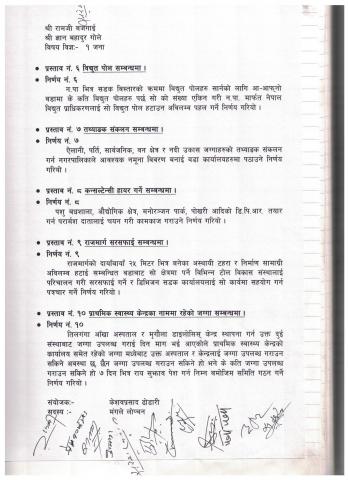 श्री रामजी बजगाई
श्री ज्ञान बहादुर गोले
विषय विज्ञः- १ जना
• प्रस्ताव नं. ६ विद्युत पोल सम्बन्धमा ।
• निर्णय नं. ६
न.पा भित्र सडक विस्तारको क्रममा विद्युत पोलहरु सार्नको लागि आ-आफ्नो
वडामा के कति विद्युत पोलहरु पर्छ सो को संख्या एकिन गरी न.पा. मार्फत नेपाल
विद्युत प्राधिकरणलाई सो विद्युत पोल हटाउन अविलम्ब पहल गर्ने निर्णय गरियो ।
• प्रस्ताव नं. ७ तथ्याङक संकलन सम्बन्धमा ।
• निर्णय नं. ७
ऐलानी, पर्ति, सार्वजनिक, वन क्षेत्र र नदी उकास जग्गाहरुको तथ्याङक संकलन
गर्न नगरपालिकाले आवश्यक नमूना विवरण बनाई वडा कार्यालयहरुमा पठाउने निर्णय
गरियो ।
• प्रस्ताव नं. ८ कन्सल्टेन्सी हायर गर्ने सम्बन्धमा ।
• निर्णय नं. ८
पशु बधशाला, औद्योगिक क्षेत्र, मनोरञ्जन पार्क, पोखरी आदिको डि.पि.आर. तयार
गर्न परार्मश दातालाई चयन गरी कामकाज गराउने निर्णय गरियो ।
• प्रस्ताव नं. ९ राजमार्ग सरसफाई सम्बन्धमा ।
• निर्णय नं. ९
राजमार्गको दायाँबायाँ २५ मिटर भित्र बनेका अस्थायी टहरा र निर्माण सामाग्री
अविलम्ब हटाई सम्बन्धित वडाबाट सो क्षेत्रमा पर्ने विभिन्न टोल विकास संस्थालाई
परिचालन गरी सरसफाई गर्ने र डिभिजन सडक कार्यालयलाई सो कार्यमा सहयोग गर्न
पत्रचार गर्ने निर्णय गरियो ।
• प्रस्ताव नं. १० प्राथमिक स्वास्थ्य केन्द्रका नाममा रहेको जग्गा सम्बन्धमा ।
• निर्णय नं. १०
तिलगंगा आँखा अस्पताल र मृगौला डाइलोसिस् केन्द्र स्थापना गर्न उक्त दुई
संस्थाबाट जग्गा उपलब्ध गराई दिन माग भई आएकोले प्राथमिक स्वास्थ्य केन्द्रको
कार्यालय समेत रहेको जग्गा मध्येबाट उक्त अस्पताल र केन्द्रलाई जग्गा उपलब्ध गराउन
सकिने अवस्था छ, छैन जग्गा उपलब्ध गराउन सकिने हो भने के कति जग्गा उपलब्ध
गराउन सकिने हो ७ दिन भित्र राय सुझाव पेश गर्न निम्न बमोजिम समिति गठन गर्ने
निर्णय गरियो ।
संयोजकः- केशवप्रसाद ढोडारी
सदस्य : मंगले लोप्चन